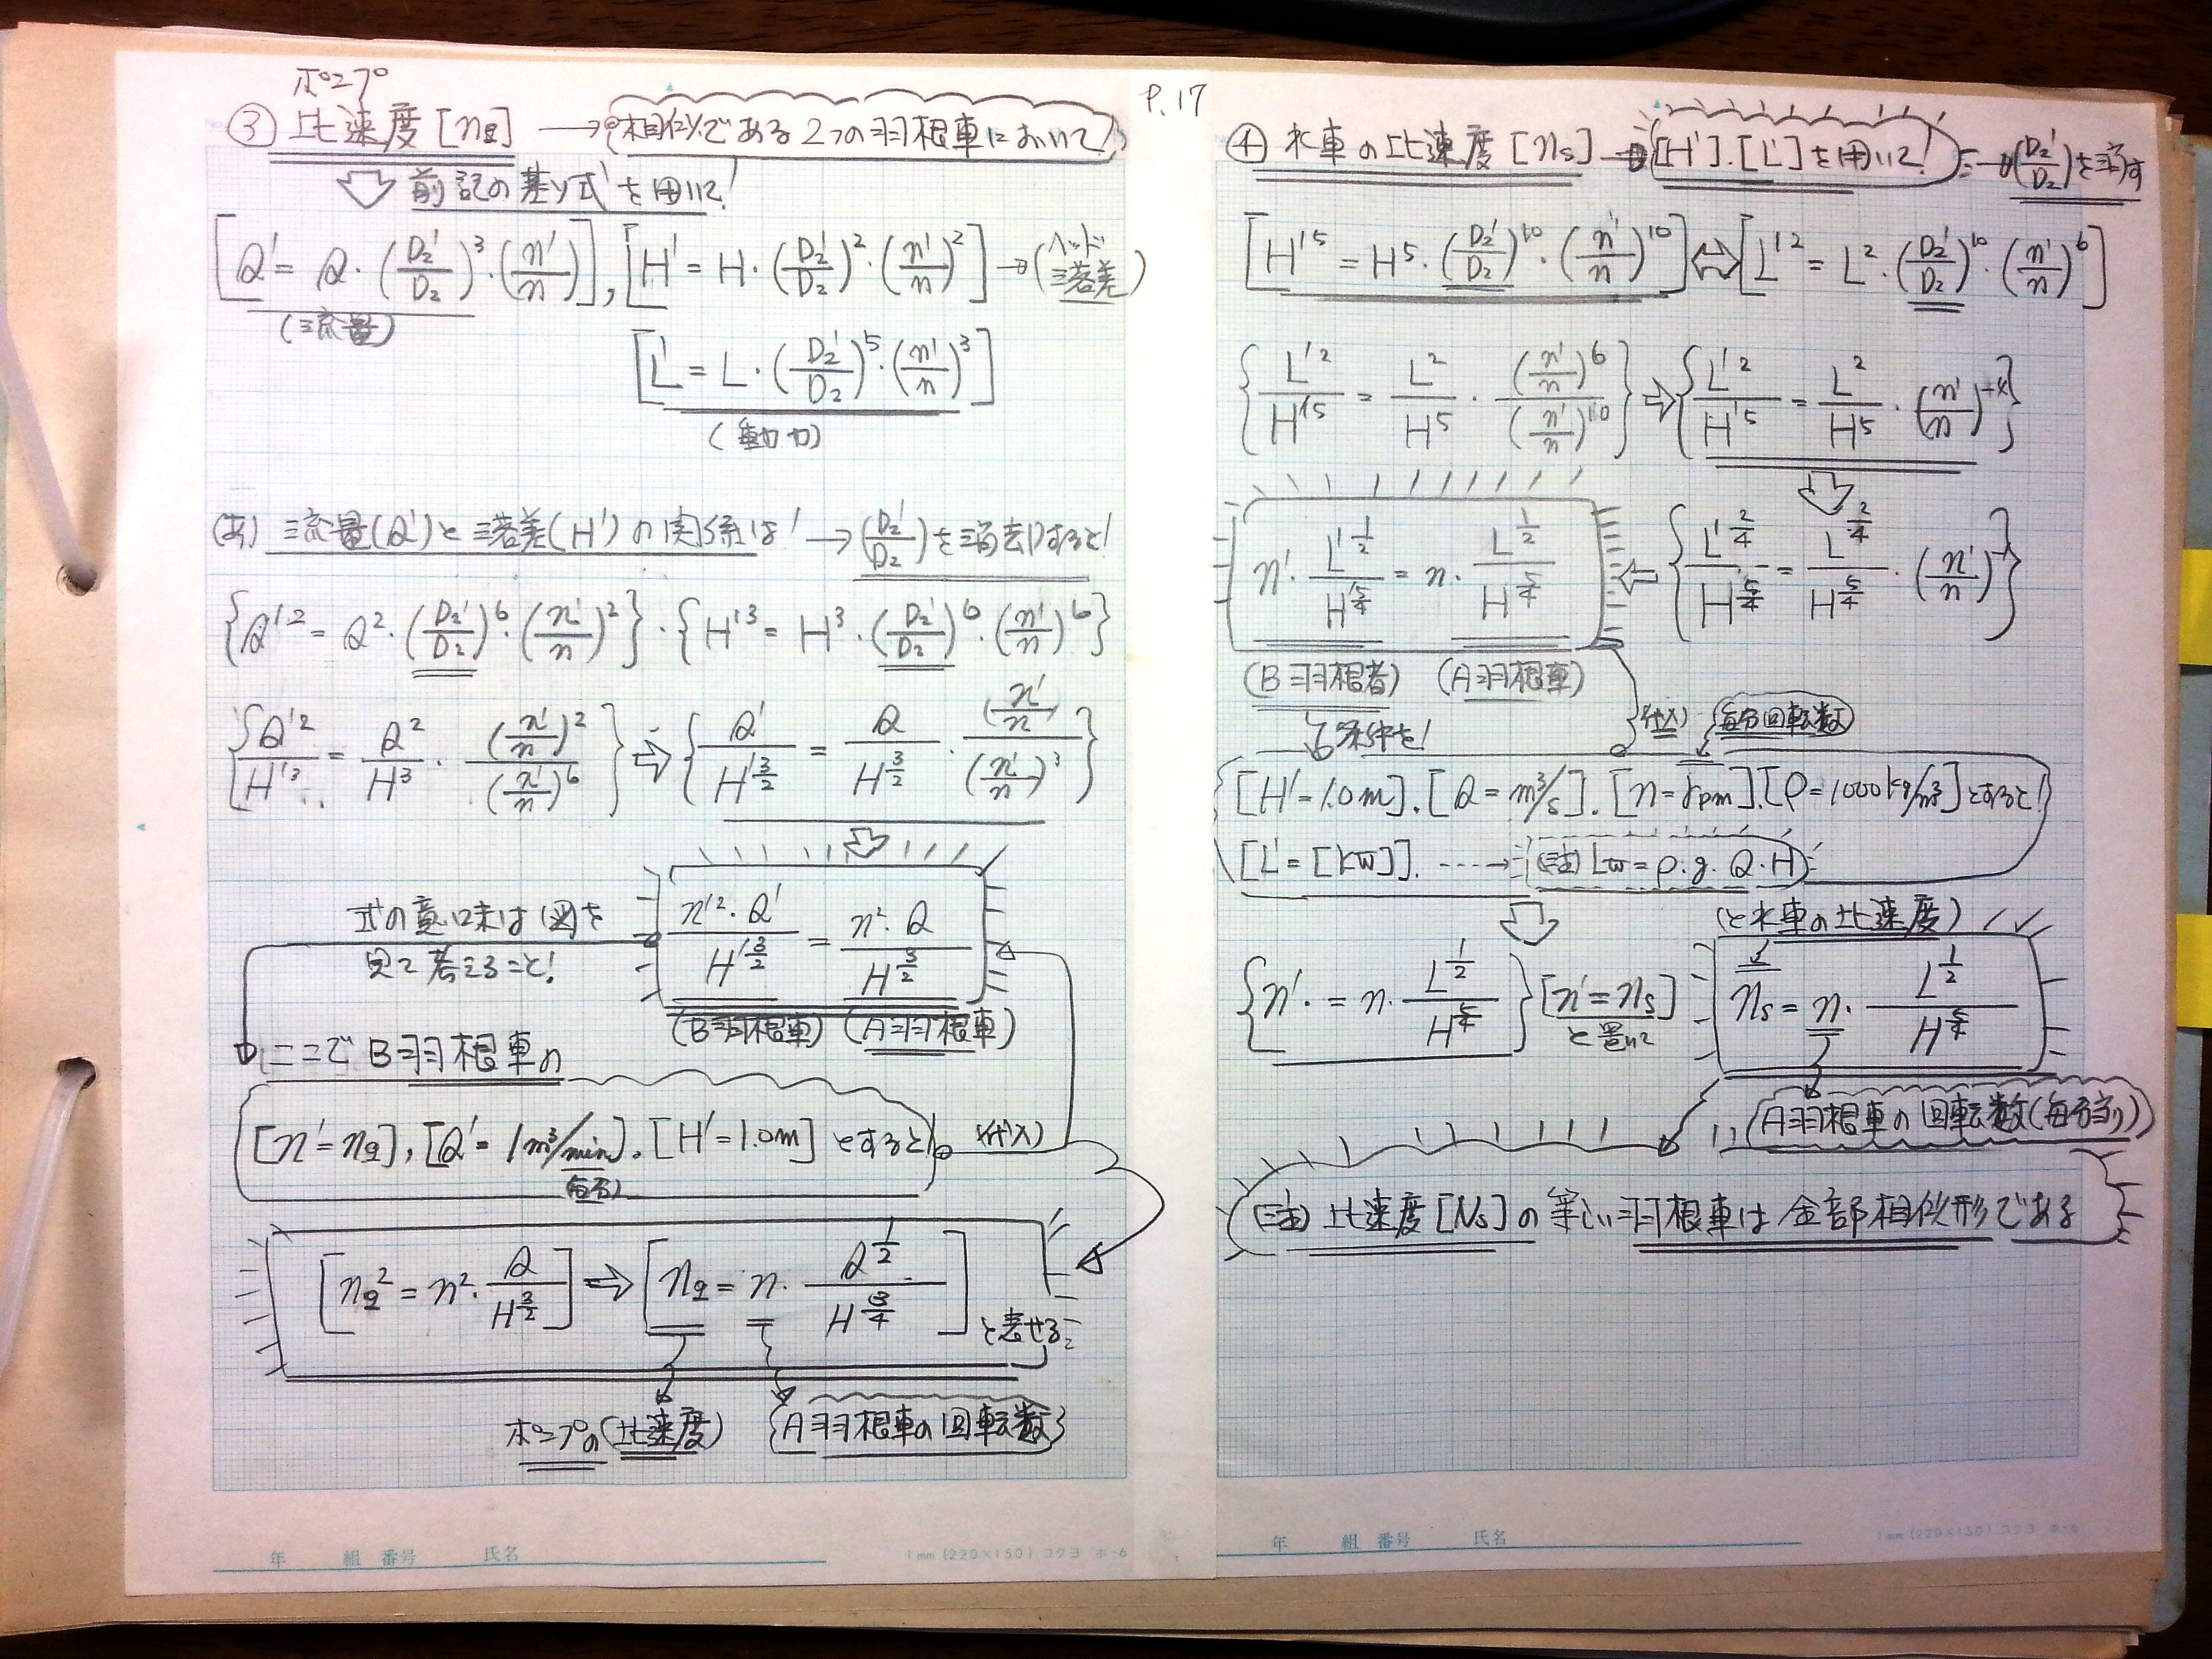 P.17
ポンプ
③ 比速度[nq] → {相似である2つの羽根車において!}
⇩ 前記の基本式を用いて!
[Q' = Q・(D₂'/D₂)³・(n'/n)], [H' = H・(D₂'/D₂)²・(n'/n)²] → (ヘッド 落差)
(流量)
[L' = L・(D₂'/D₂)⁵・(n'/n)³]
(動力)
(あ) 流量(Q')と落差(H')の関係は! → (D₂'/D₂)を消去すると!
{Q'² = Q²・(D₂'/D₂)⁶・(n'/n)²}・{H'³ = H³・(D₂'/D₂)⁶・(n'/n)⁶}
{Q'²/H'³ = Q²/H³・(n'/n)²/(n'/n)⁶} ⇨ {Q'/H'^(3/2) = Q/H^(3/2)・(n'/n)/(n'/n)³}
⇩
n'²・Q'/H'^(3/2) = n²・Q/H^(3/2)
式の意味は図を
見て考えること!
(B羽根車) (A羽根車)
ここでB羽根車の
[n' = nq], [Q' = 1m³/min], [H' = 1.0m] とすると (代入)
(毎分)
[nq² = n²・Q/H^(3/2)] ⇨ [nq = n・Q^(1/2)/H^(3/4)] と表せる
ポンプの(比速度) {A羽根車の回転数}
年 組 番号 氏名
1mm(220×150) コクヨ ホ-6
④ 水車の比速度[ns] → [H'].[L']を用いて! → (D₂'/D₂)を消す
[H'⁵ = H⁵・(D₂'/D₂)¹⁰・(n'/n)¹⁰] ⇔ [L'² = L²・(D₂'/D₂)¹⁰・(n'/n)⁶]
{L'²/H'⁵ = L²/H⁵・(n'/n)⁶/(n'/n)¹⁰} ⇨ {L'²/H'⁵ = L²/H⁵・(n'/n)⁻⁴}
⇩
n'・L'^(1/2)/H'^(5/4) = n・L^(1/2)/H^(5/4) ⇦ {L'^(2/4)/H'^(5/4) = L^(2/4)/H^(5/4)・(n'/n)⁻¹}
(B羽根者) (A羽根車)
条件を! (代入) (毎分回転数)
[H' = 1.0m].[Q = m³/s].[n = rpm].[ρ = 1000kg/m³]とすると!
[L' = [kW]]. ----→ (注) Lw = ρ.g.Q.H
⇩
(と水車の比速度)
{n'・ = n・L^(1/2)/H^(5/4)} [n' = ns] ns = n・L^(1/2)/H^(5/4)
と置いて
(A羽根車の回転数(毎分当り))
(注) 比速度[Ns]の等しい羽根車は全部相似形である
年 組 番号 氏名
1mm(220×150) コクヨ ホ-6